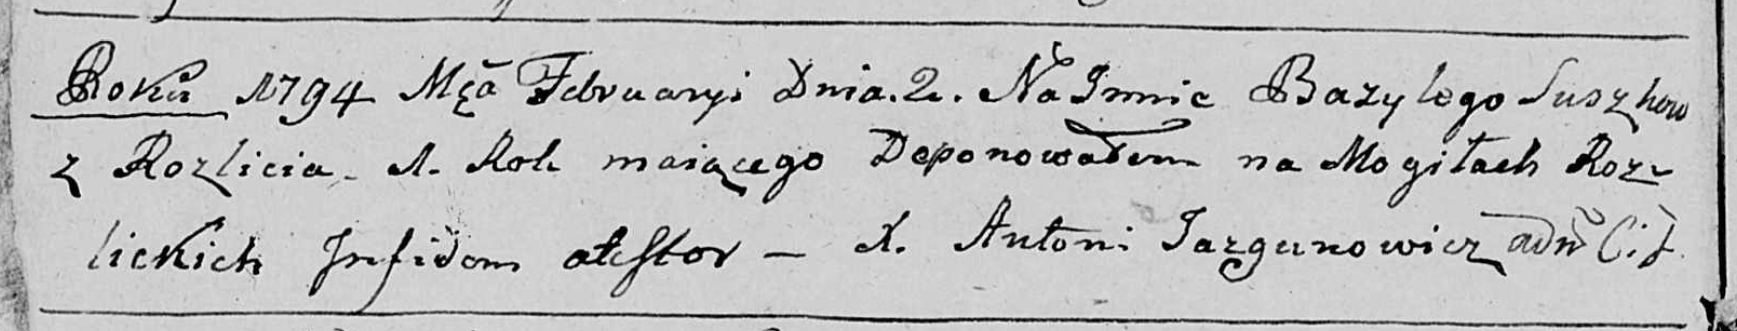 Roku 1794 Mca Februaryi Dnia. 2. Na Imnie Bazylego Suszkow
z Rozlicia. 1. Rok maiącego Deponowałem na Mogiłach Roz-
lickich Infidem atestor — X. Antoni Jazgunowicz adm